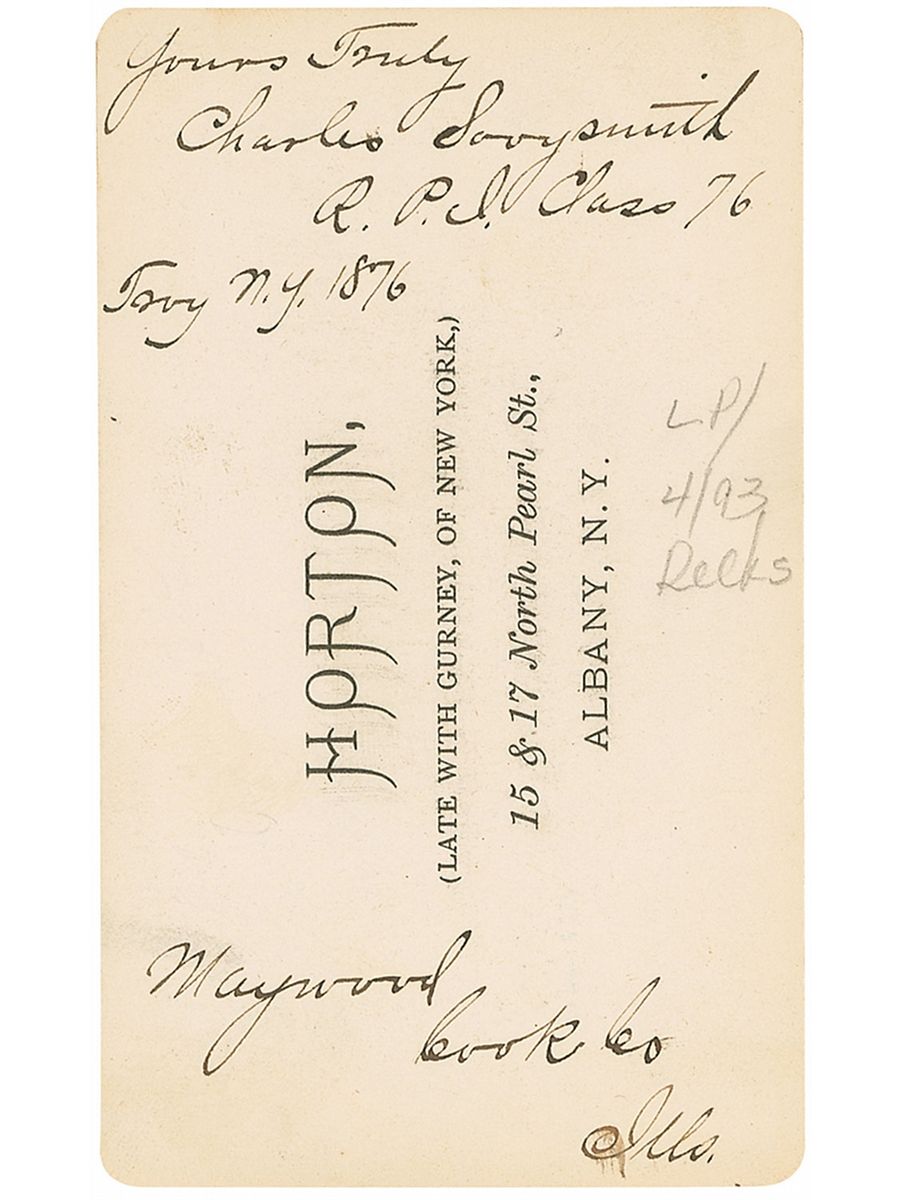 Yours Truly
Charles Sooysmith
R. P. I. Class 76
Troy N.Y. 1876
HORTON,
(LATE WITH GURNEY, OF NEW YORK,)
15 & 17 North Pearl St.,
ALBANY, N. Y.
LP/
4/93
Maywood
Cook Co
Ills.